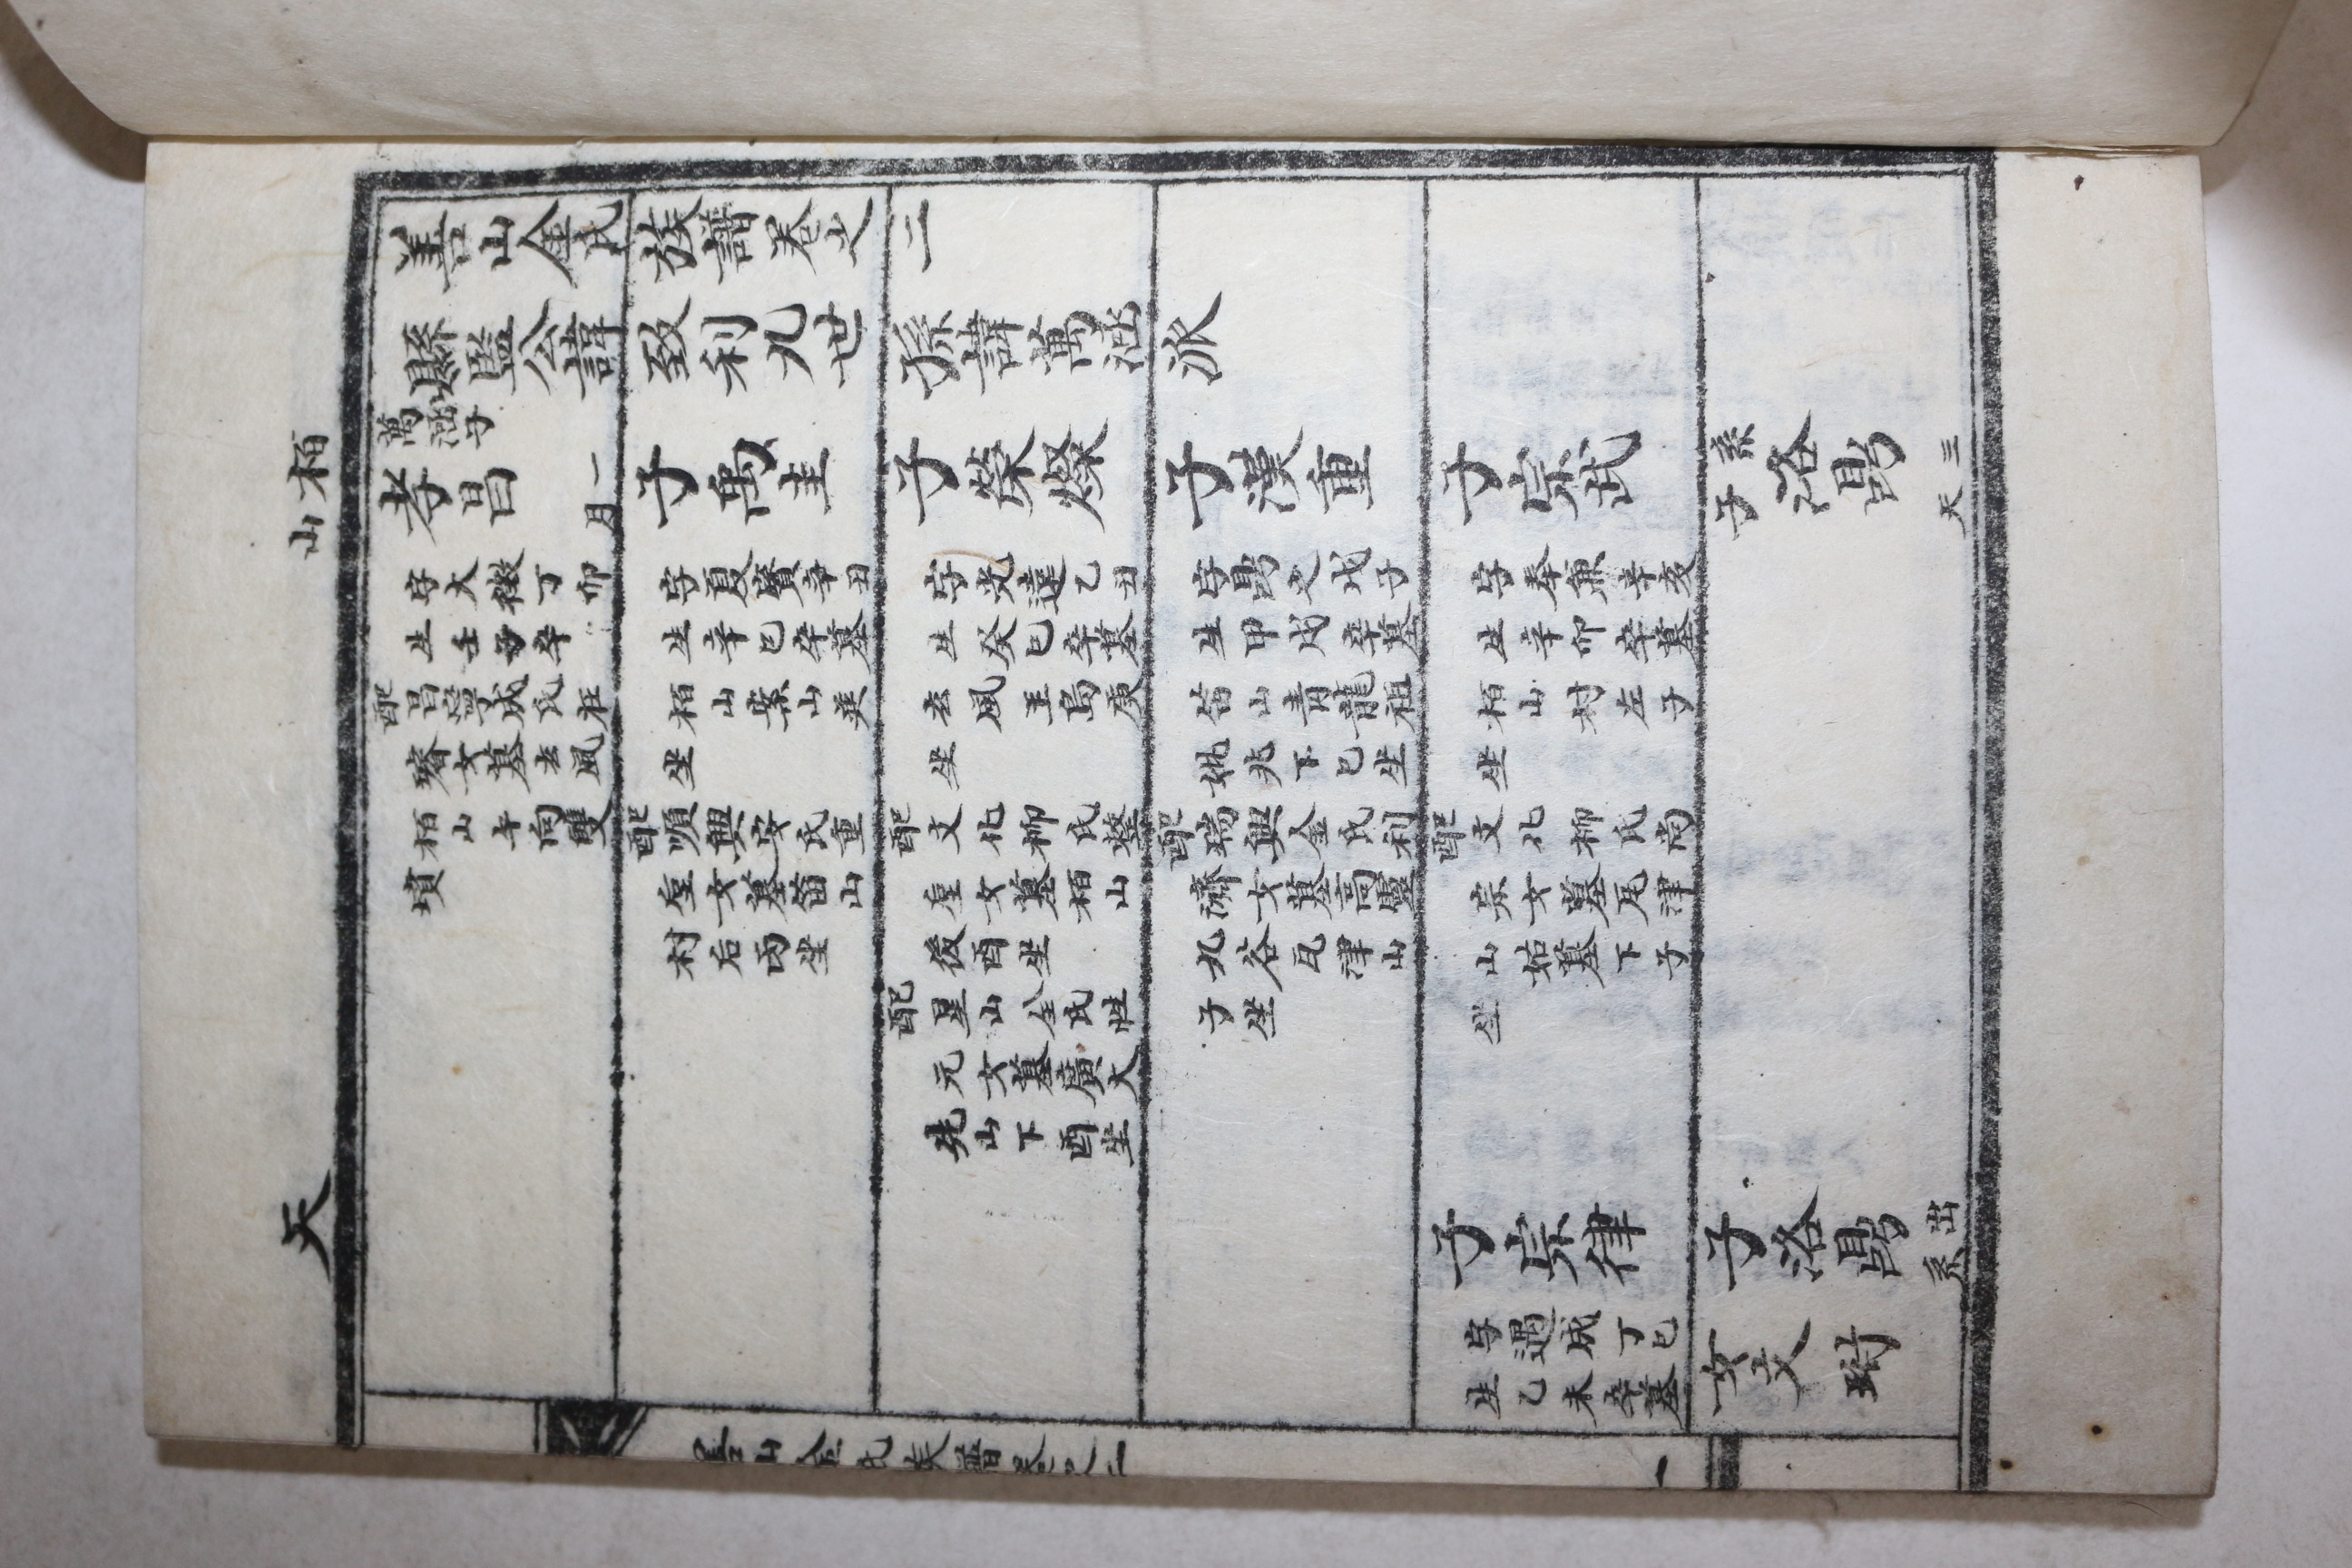 栢山
天
善山金氏族譜卷之二
縣監公諱致利九世孫諱萬涵派
萬涵子
孝昌
一月
字大徵丁卯
生壬子卒
配昌寧成氏枉
璿女墓玄風
栢山午向雙
墳
子禹圭
字夏賚辛丑
生辛巳卒墓
栢山案山巽
坐
配順興安氏重
奎女墓笛山
村后丙坐
子榮燦
字光遠乙丑
生癸巳卒墓
玄風王島庚
坐
配文化柳氏整
奎女墓栢山
後酉坐
配星山全氏性
元女墓廣大
先山下酉坐
子漢重
字鼎之戊子
生甲戌卒墓
笛山靑龍祖
妣兆下巳坐
配瑞興金氏利
濟女墓高靈
九谷瓦津山
子坐
子宗武
字奉兼辛亥
生辛卯卒墓
栢山村左子
坐
配文化柳氏尚
宗女墓瓦津
山姑墓下子
坐
子宗律
字遇成丁巳
生乙未卒墓
系子洛鼎
三天
子洛鼎
出系
女文珝
善山金氏族譜卷之二
一